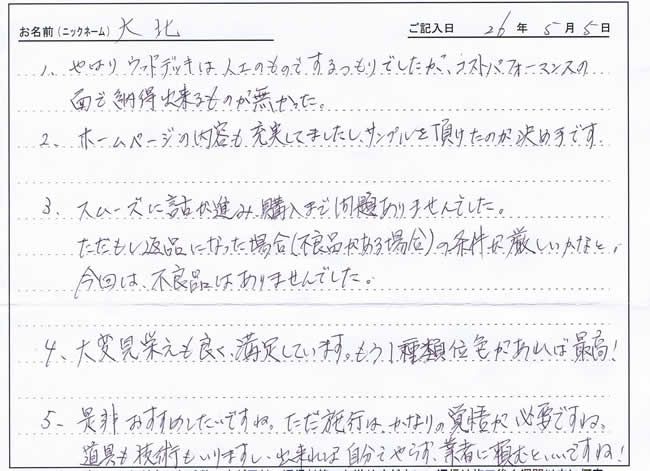 お名前(ニックネーム) 大北 ご記入日 26年 5月 5日
1、やはり ウッドデッキは人工のもので するつもりでしたが、コストパフォーマンスの
面で納得出来るものが無かった。
2、ホームページの内容も充実してましたし、サンプルを頂けたのが決め手です。
3、スムーズに話が進み、購入まで問題ありませんでした。
ただもし返品になった場合(不良品がある場合)の条件が厳しいかなと、
今回は、不良品はありませんでした。
4、大変見栄えも良く、満足しています。もう1種類位色があれば最高!
5-是非おすすめしたいですね。ただ施行は、かなりの覚悟が必要ですね。
道具も技術もいりますし、出来れば自分でやらず、業者に頼むといいですね!